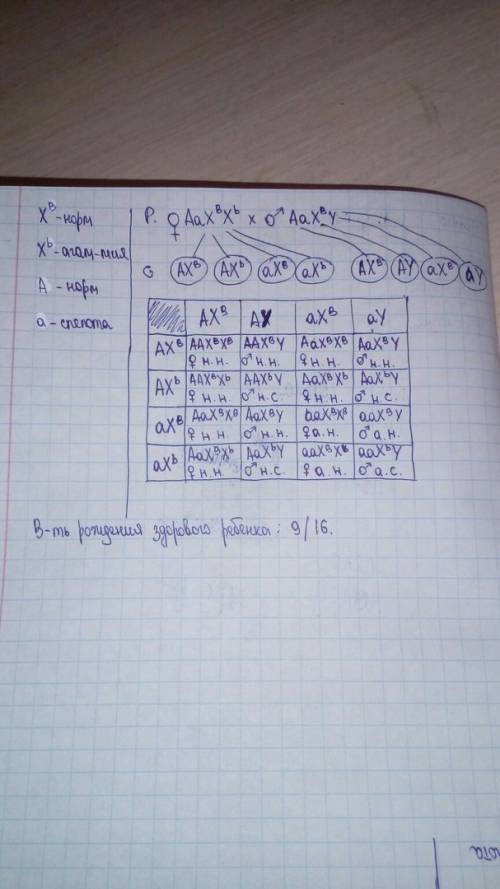 X^B - норм
X^b - агам-мия
A - норм
a - слепота
P. ♀ AaX^BX^b × ♂ AaX^BY
G AX^B AX^b aX^B aX^b AX^B AY aX^B aY
AX^B AY aX^B aY
AX^B AAX^BX^B AAX^BY AaX^BX^B AaX^BY
♀ н.н. ♂ н.н. ♀ н.н. ♂ н.н.
AX^b AAX^BX^b AAX^bY AaX^BX^b AaX^bY
♀ н.н. ♂ н.с. ♀ н.н. ♂ н.с.
aX^B AaX^BX^B AaX^BY aaX^BX^B aaX^BY
♀ н.н. ♂ н.н. ♀ а.н. ♂ а.н.
aX^b AaX^BX^b AaX^bY aaX^BX^b aaX^bY
♀ н.н. ♂ н.с. ♀ а.н. ♂ а.с.
В-ть рождения здорового ребенка: 9/16.